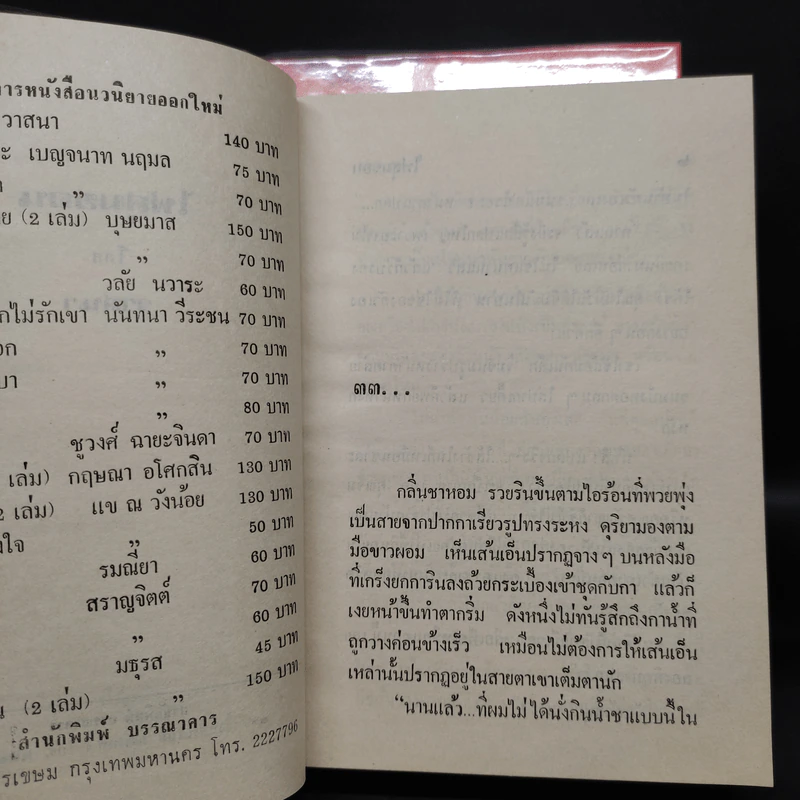 ารหนังสือนวนิยายออกใหม่
วาสนา 140 บาท
ะ เบญจนาท นฤมล 75 บาท
า ” 70 บาท
ย (2 เล่ม) บุษยมาส 150 บาท
” 70 บาท
วลัย นวาระ 60 บาท
กไม่รักเขา นันทนา วีระชน 70 บาท
อก ” 70 บาท
บา ” 70 บาท
” 80 บาท
ชูวงศ์ ฉายะจินดา 70 บาท
เล่ม) กฤษณา อโศกสิน 130 บาท
2 เล่ม) แข ณ วังน้อย 130 บาท
งใจ ” 50 บาท
รมณียา 60 บาท
สราญจิตต์ 70 บาท
” 60 บาท
มธุรส 45 บาท
น (2 เล่ม) ” 150 บาท
สำนักพิมพ์ บรรณาคาร
รเขษม กรุงเทพมหานคร โทร. 2227796
๓๓...
กลิ่นชาหอม รวยรินขึ้นตามไอร้อนที่พวยพุ่ง
เป็นสายจากปากกาเรียวรูปทรงระหง ดุริยามองตาม
มือขาวผอม เห็นเส้นเอ็นปรากฏจาง ๆ บนหลังมือ
ที่เกร็งยกการินลงถ้วยกระเบื้องเข้าชุดกับกา แล้วก็
เงยหน้าขึ้นทำตากริ่ม ดังหนึ่งไม่ทันรู้สึกถึงกาน้ำที่
ถูกวางค่อนข้างเร็ว เหมือนไม่ต้องการให้เส้นเอ็น
เหล่านั้นปรากฏอยู่ในสายตาเขาเต็มตานัก
“นานแล้ว...ที่ผมไม่ได้นั่งกินน้ำชาแบบนี้ใน